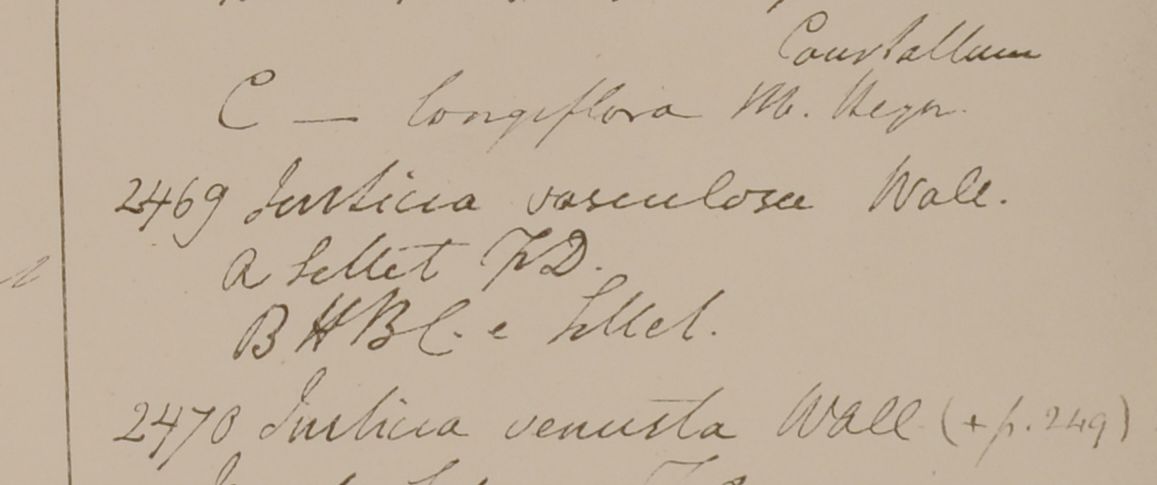 Courtallum
C — longiflora M. Heyn.
2469 Justicia vasculosa Wall.
a Sillet FD.
B HBC. e Sillet.
2470 Justicia venusta Wall (+p. 249)